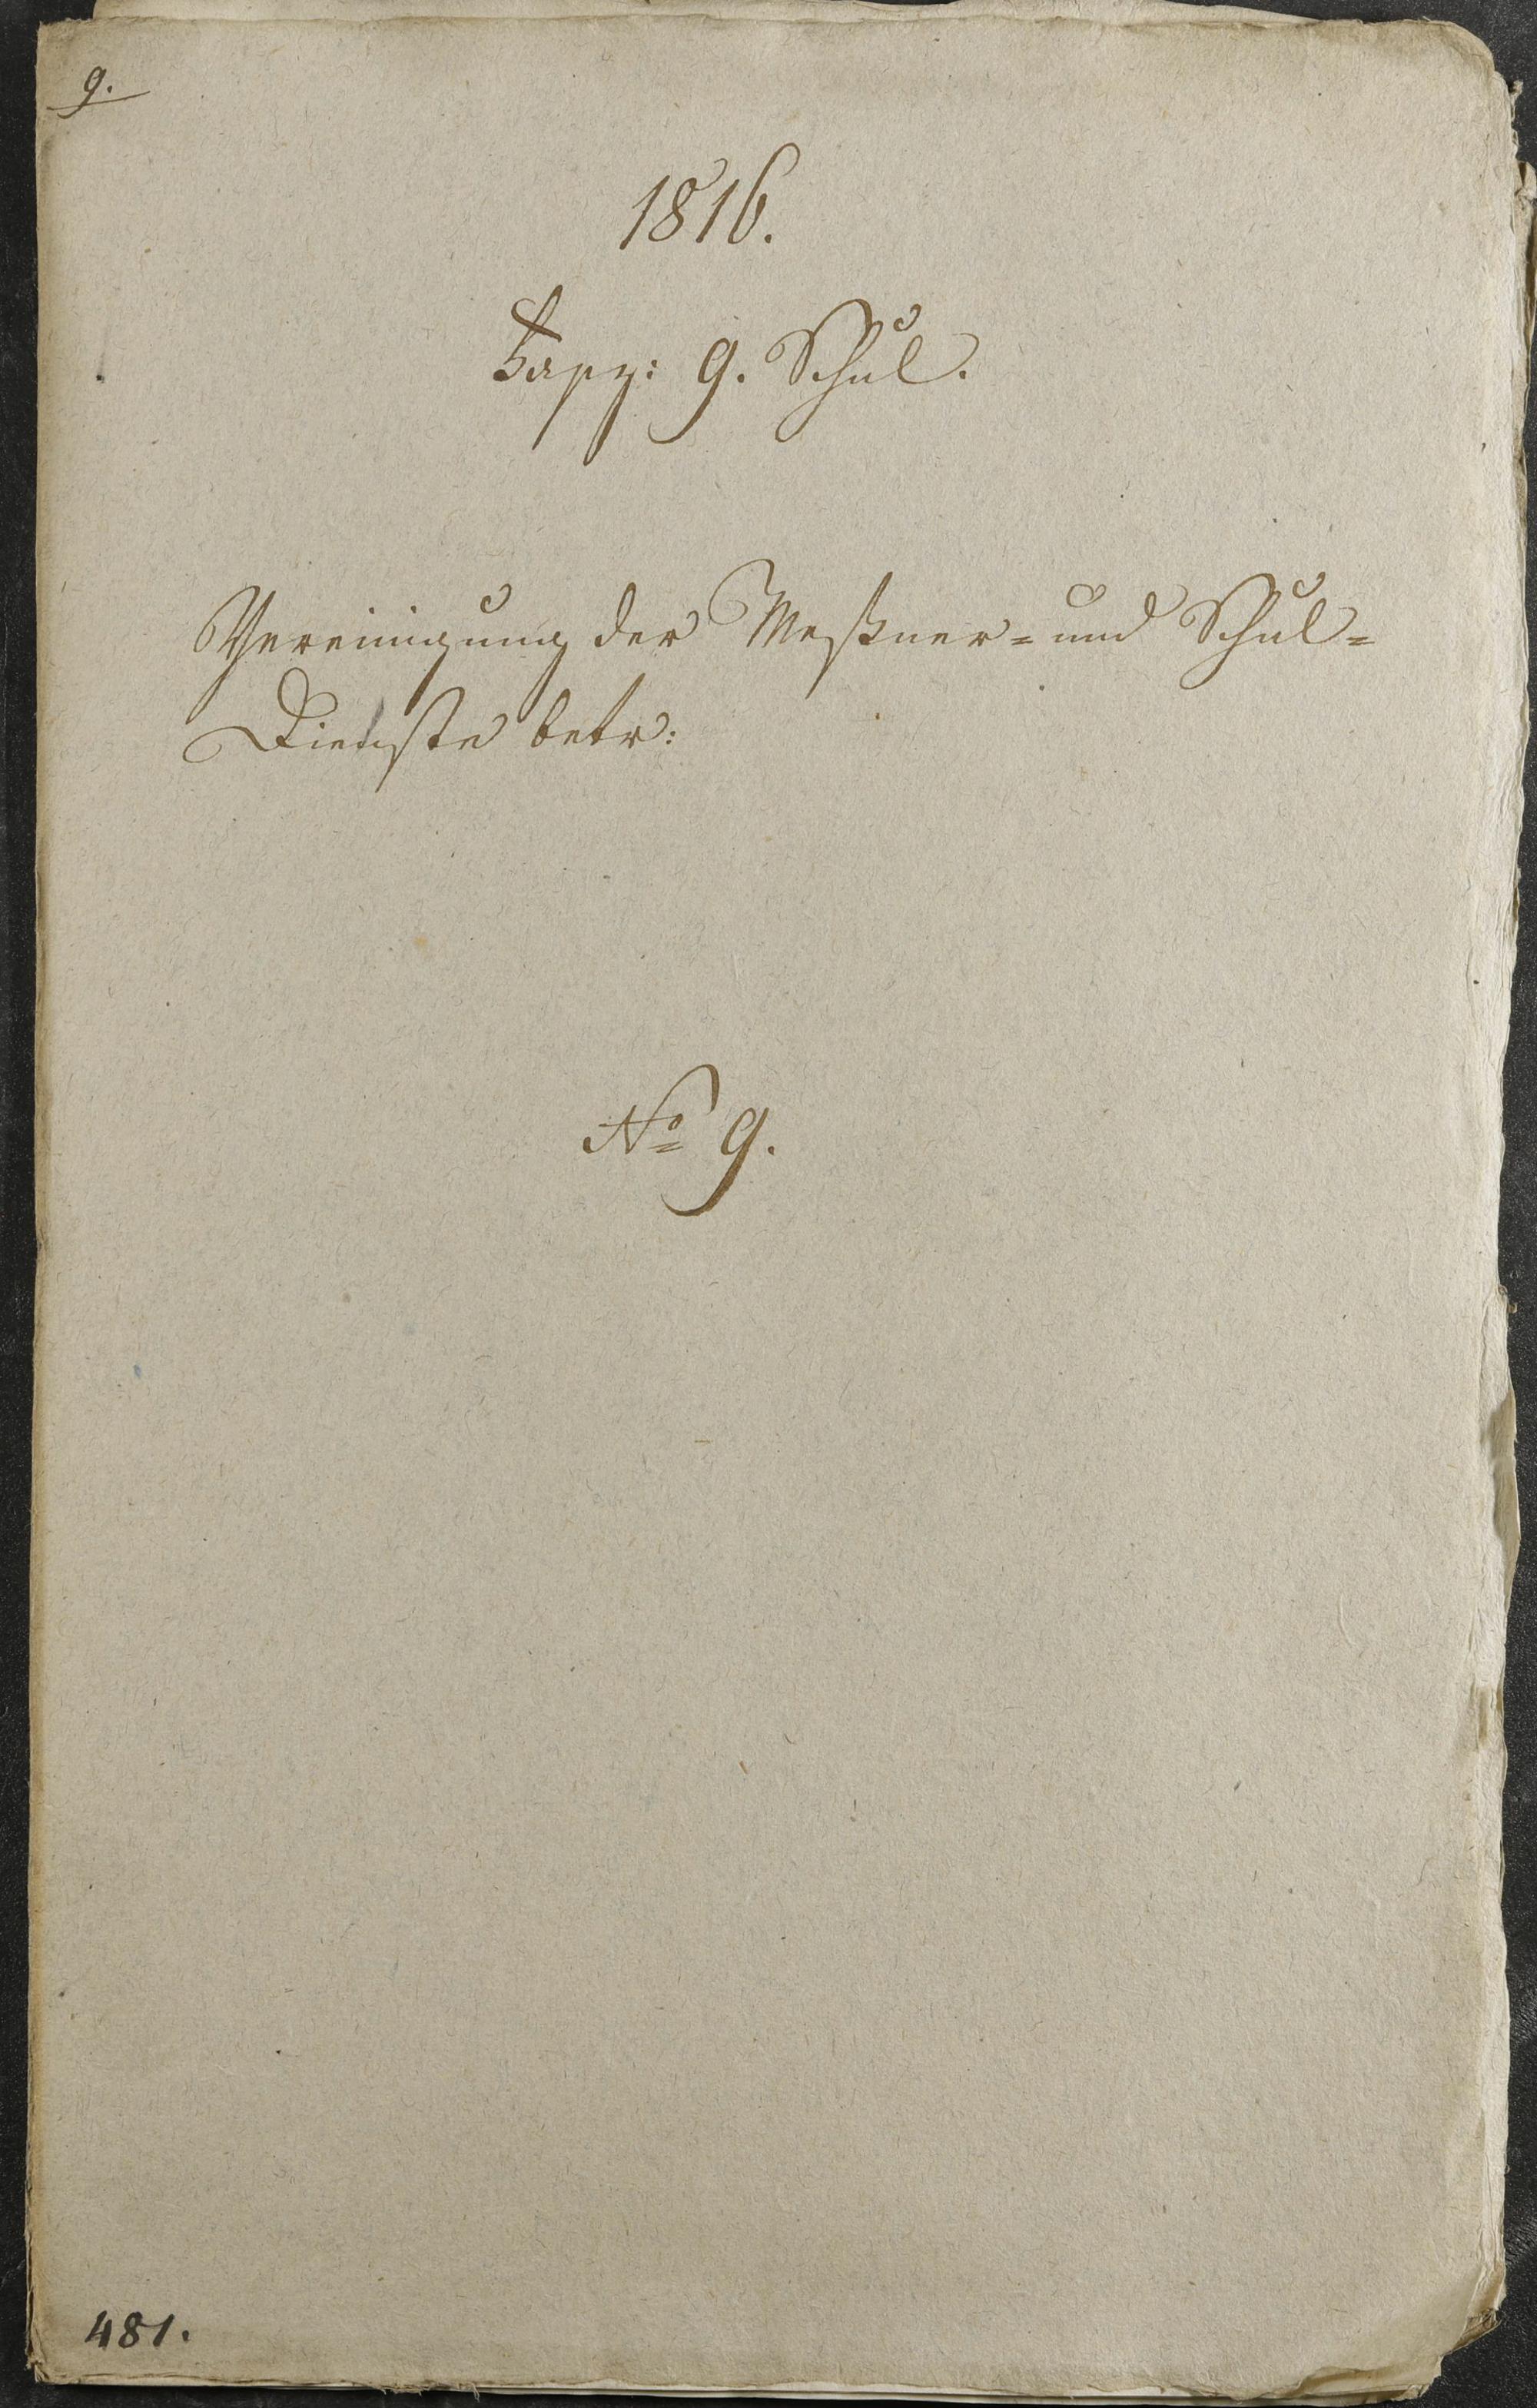 9.
1816.
9. Schul.
Vereinigung der Meßner= und Schul=
Dienste betr:
No 9.
481.